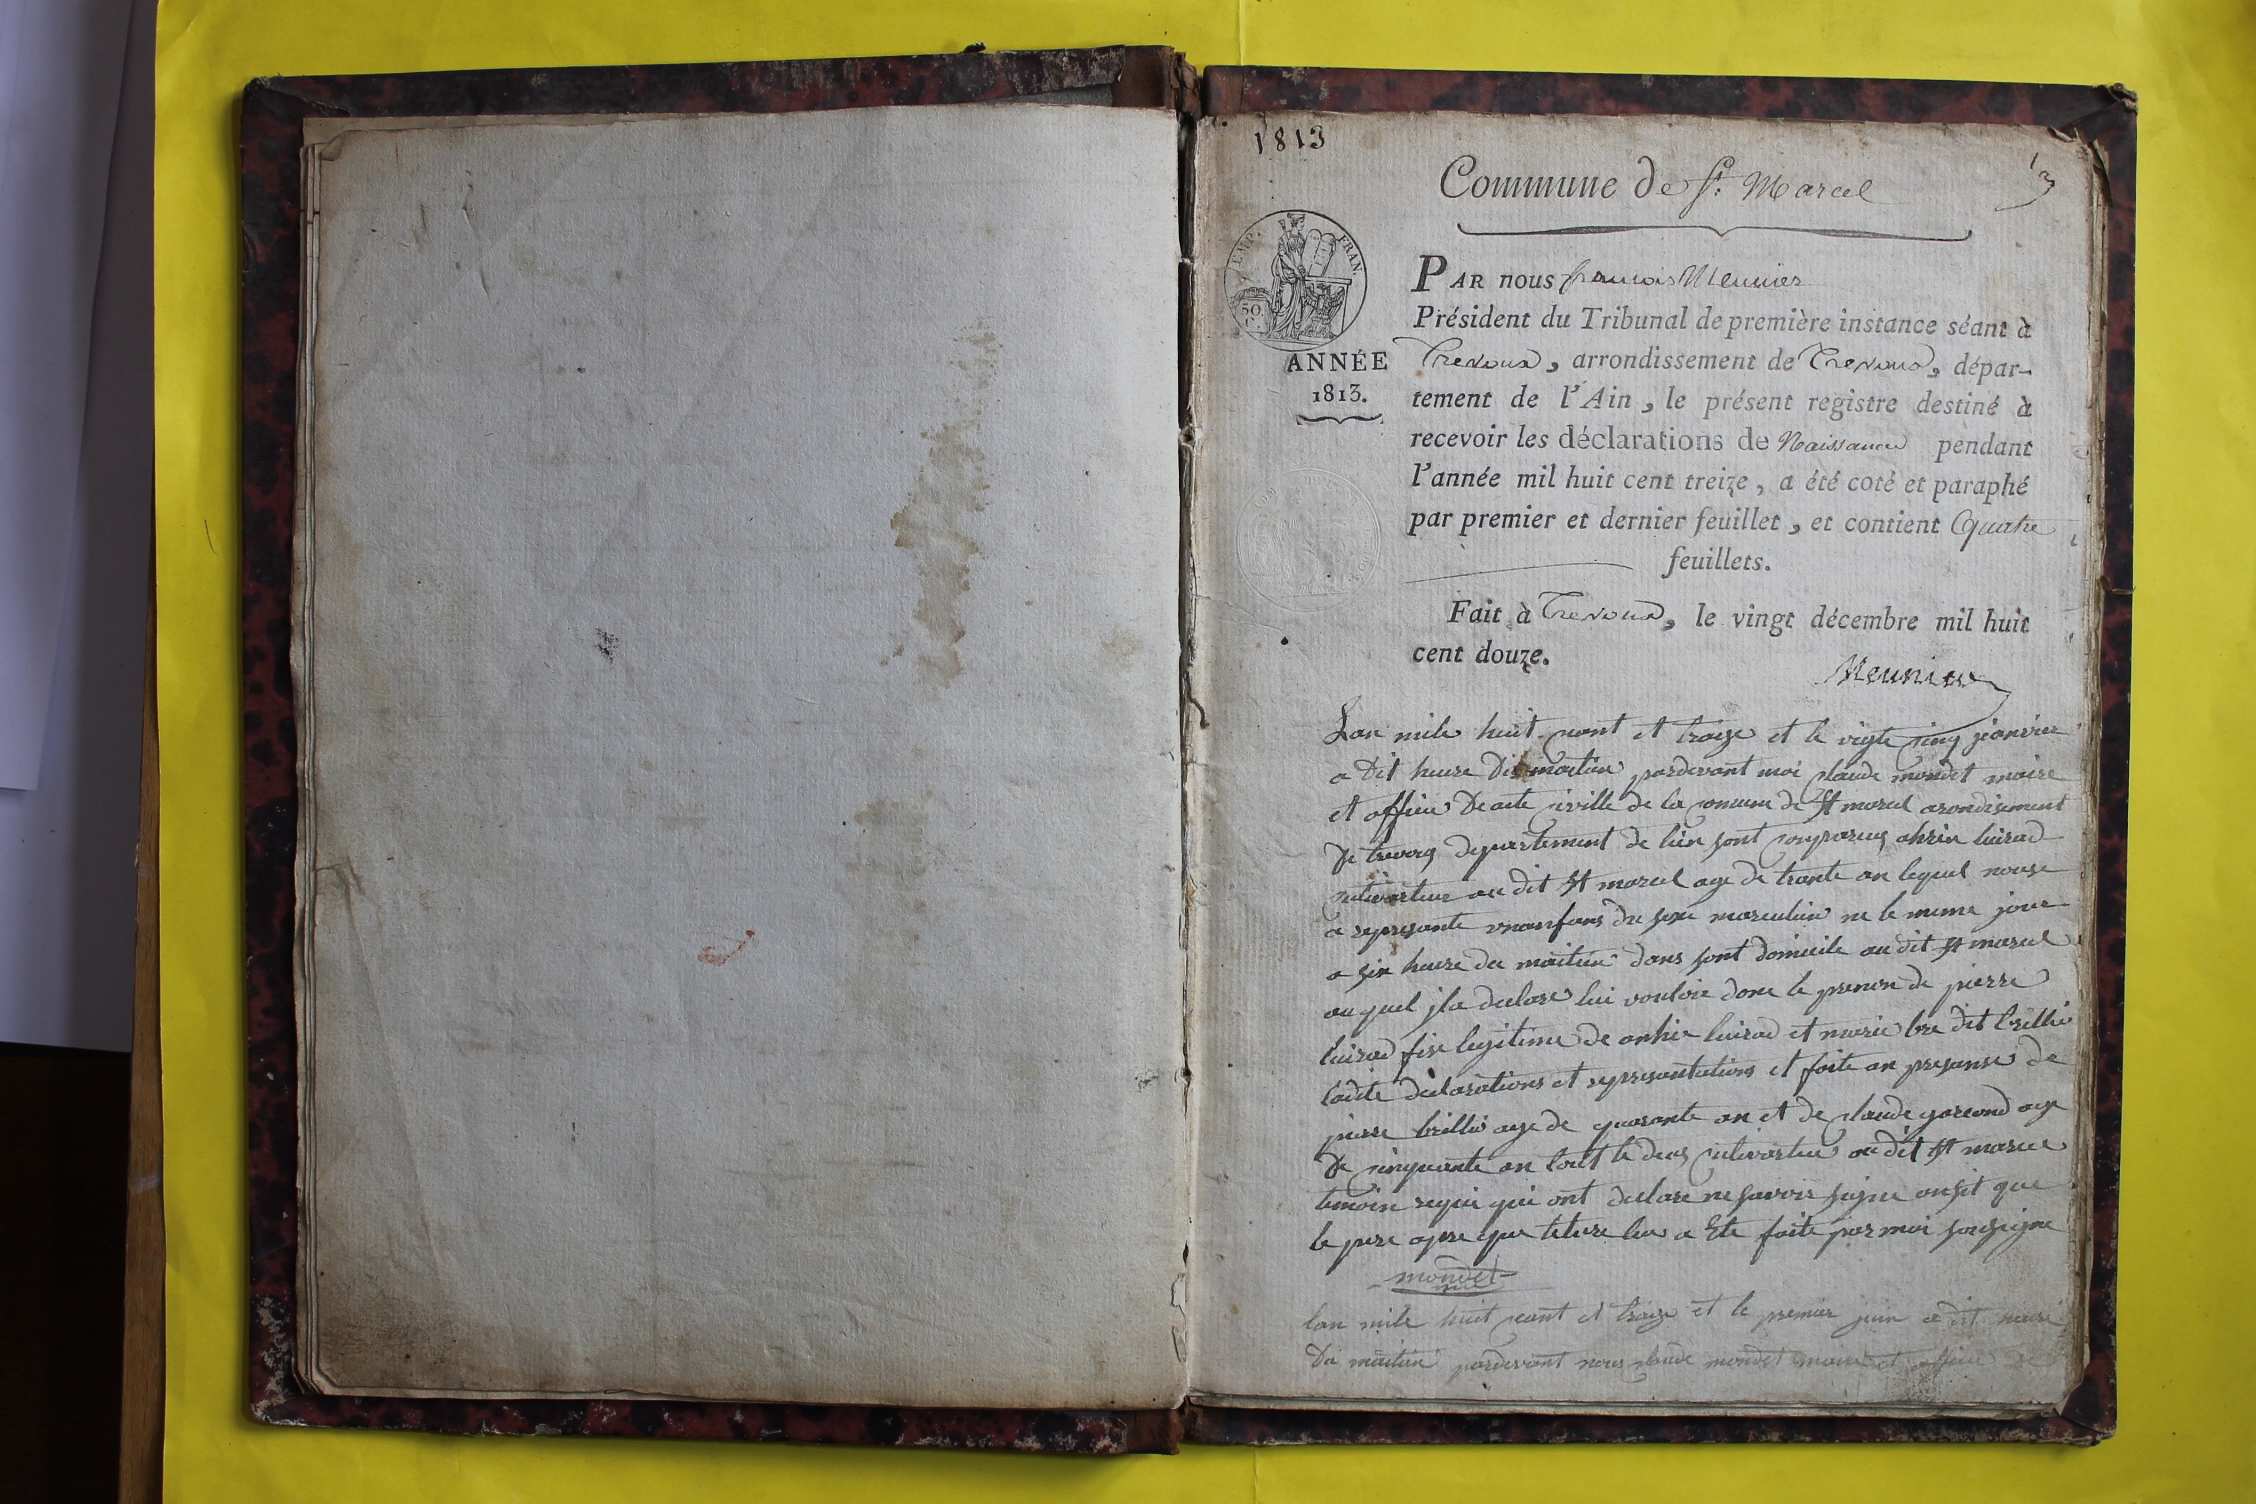 1813
1
3
Commune de St. Marcel
IMP. FRAN.
50.
C.
PAR nous francois Meunier
Président du Tribunal de première instance séant à
ANNÉE
1813.
Trevoux, arrondissement de Trevoux, dépar-
tement de l'Ain, le présent registre destiné à
recevoir les déclarations de Naissance pendant
l'année mil huit cent treize, a été coté et paraphé
par premier et dernier feuillet, et contient Quatre
feuillets.
Fait à Trevoux, le vingt décembre mil huit
cent douze.
Meunier
Lan mile huit cant et traize et le vigte cinq jeanvier
a dit heure du maitin pardevant moi claude mondet maire
et officié de acte civille de la comune de St marcel arondisement
de departement de lain sont comparus
cultivarteur au dit St marcel age de trante an lequel nouse
a represante unanfans du sexe marculin ne le meme jour
a six heure du maitin dans sont domicile au dit St marcel
au quel jla declare lui vouloir done le prenon de pierre
fise legitime de et marie dit brillié
ladite declarations et represantations et faite an presanse de
pierre brillié age de quarante an et de claude age
de cinquante an tout le deus cultivarteur au dit St marcel
temoin requi qui ont declare ne savoir signe ansit que
le pere apre que leture leu a Ete faite par moi sousigne
mondet
lan mile huit cant et traize et le premier juin a dit heure
du maitin pardevant nous claude mondet maire et officié